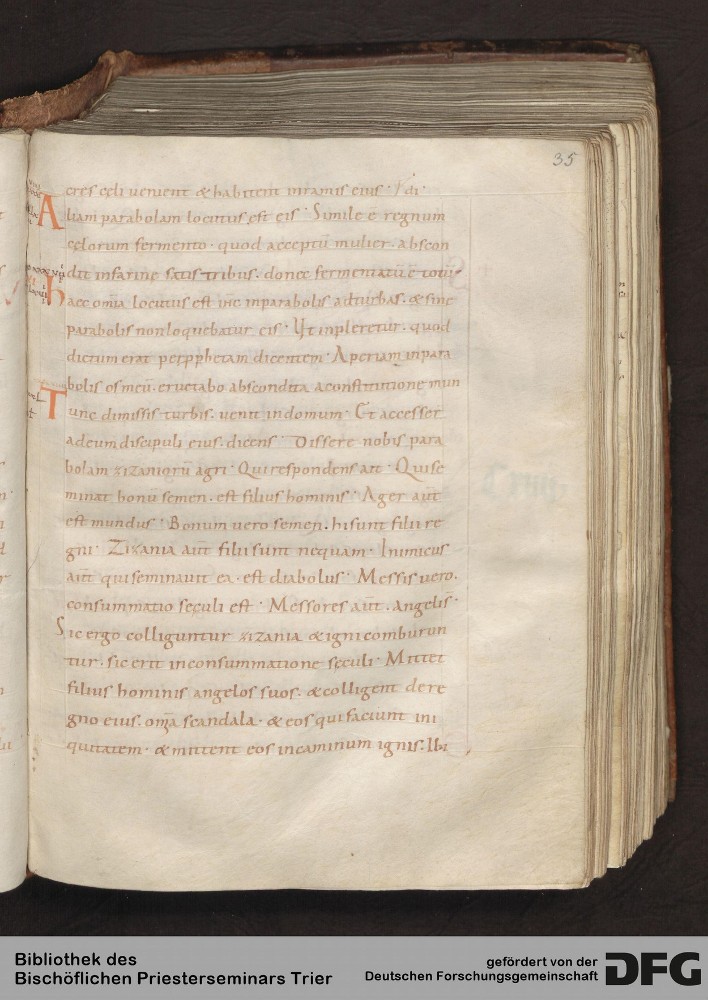 35
cres cęli ueniant & habitent inramis eius·
Aliam parabolam locutus est eis· Simile ē regnum
cęlorum fermento· quod acceptū mulier· abscon
dit infarinę satis tribus· donec fermentatū ē totū·
haec omīa locutus est ihc inparabolis adturbas· & sine
parabolis nonloquebatur eis· Ut inpleretur· quod
dictum erat perpphetam dicentem· Aperiam inpara
bolis os meū· eructabo abscondita aconstitutione mun
Tunc dimissis turbis· uenit indomum· Et accesser̄
adeum discipuli eius· dicens· Dissere nobis para
bolam zizaniorū agri· Qui respondens ait· Qui se
minat bonū semen· est filius hominis· Ager aūt
est mundus· Bonum uero semen· hisunt filii re
gni· Zizania aūt filii sunt nequam· Inimicus
aūt qui seminauit ea· est diabolus· Messis uero·
consummatio sęculi est· Messores aūt· angeli s̄·
Sic ergo colliguntur zizania & igni comburun
tur· sic erit inconsummatione sęculi· Mittet
filius hominis angelos suos· & colligent dere
gno eius· omīa scandala· & eos qui faciunt ini
quitatem· & mittent eos incaminum ignis· Ibi
Bibliothek des
Bischöflichen Priesterseminars Trier
gefördert von der
Deutschen Forschungsgemeinschaft
DFG